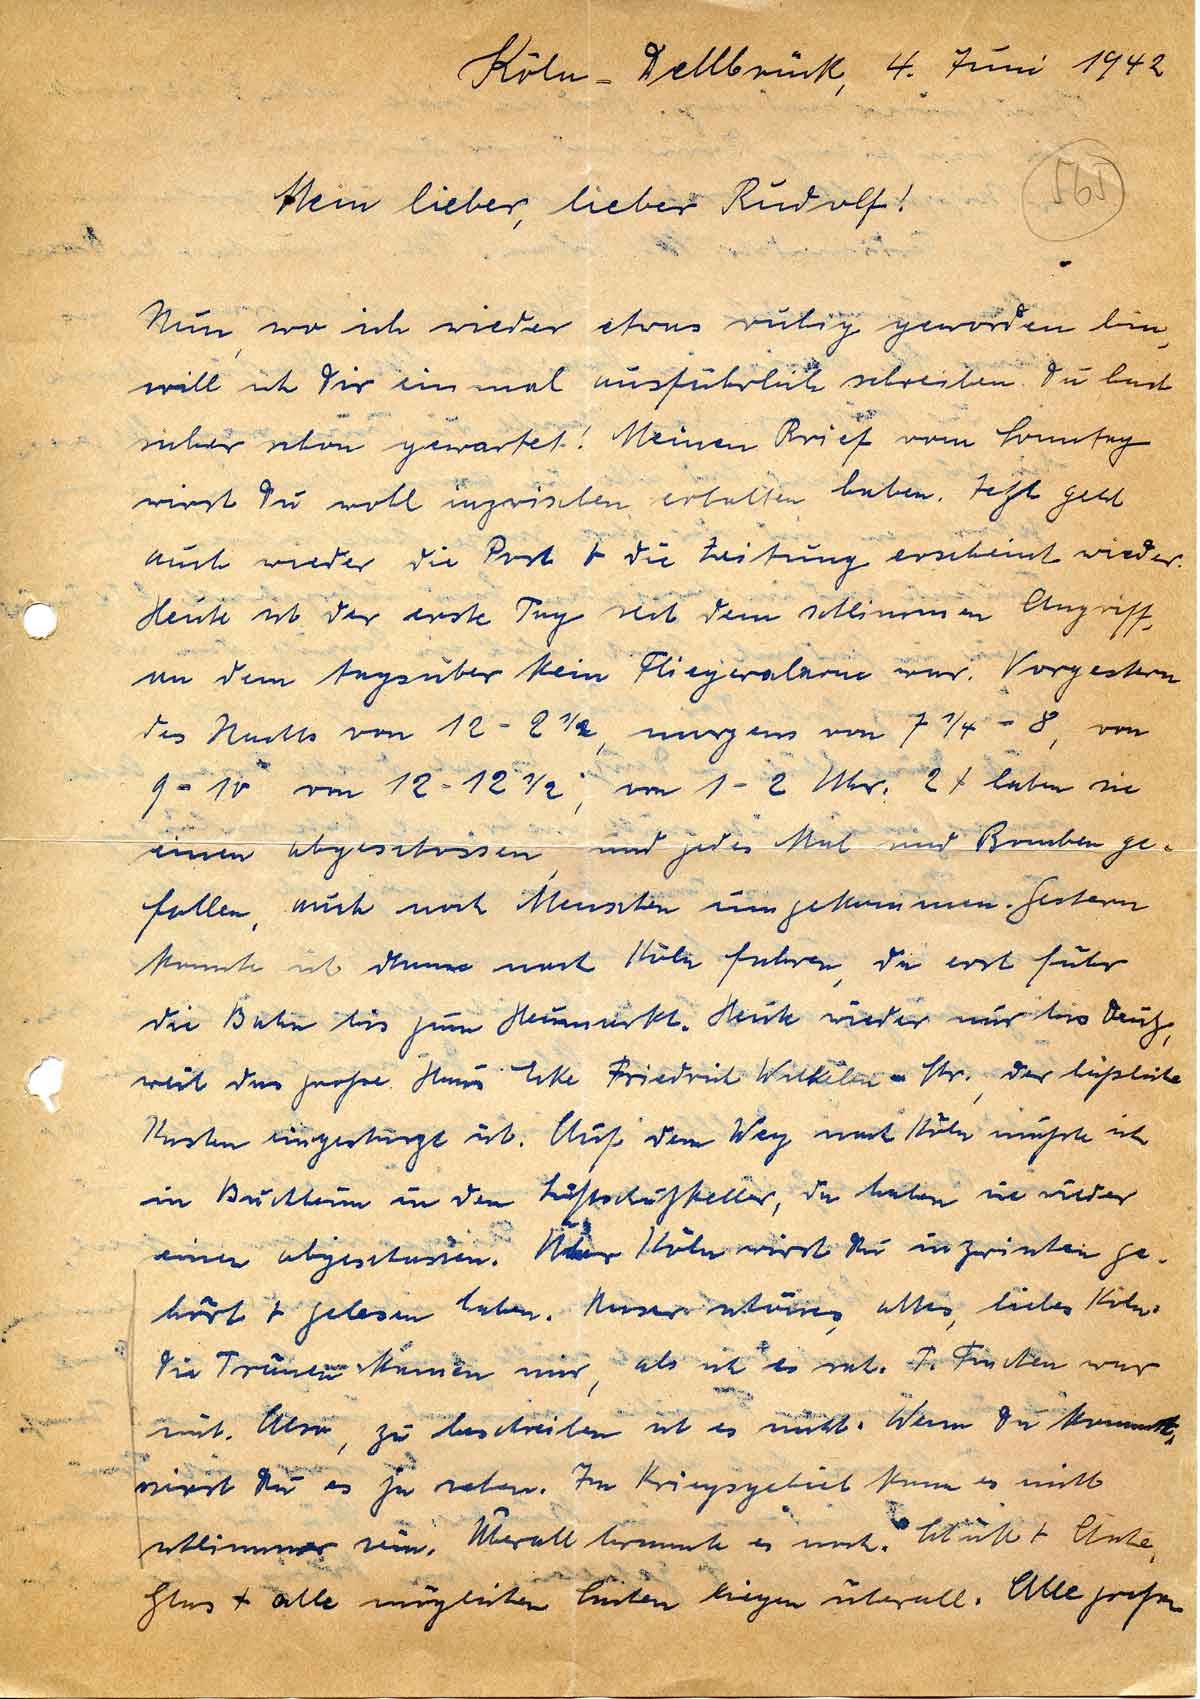 Köln - Dellbrück, 4. Juni 1942
565
Mein lieber, lieber Rudolf!
Nun, wo ich wieder etwas ruhig geworden bin,
will ich Dir einmal ausführlich schreiben. Du hast
sicher schon gewartet! Meinen Brief vom Sonntag
wirst Du wohl inzwischen erhalten haben. Jetzt geht
auch wieder die Post + die Zeitung erscheint wieder.
Heute ist der erste Tag seit dem schlimmen Angriff,
an dem tagsüber kein Fliegeralarm war. Vorgestern
des Nachts von 12 - 2 1/2, morgens von 7 1/4 - 8, von
9 - 10 von 12 - 12 1/2, von 1 - 2 Uhr. 2 x haben sie
einen abgeschossen, und jedes Mal sind Bomben ge-
fallen, auch noch Menschen umgekommen. Gestern
konnte ich nach Köln fahren, da erst fuhr
die Bahn bis zum Heumarkt. Heute wieder nur bis Deutz,
weil das große Haus Ecke Friedrich Wilhelm - Str., der
Kasten eingestürzt ist. Auf dem Weg nach Köln mußte ich
in Buchheim in den Luftschutzkeller, da haben sie wieder
einen abgeschossen. Über Köln wirst Du inzwischen ge-
hört + gelesen haben. Unser schönes, altes, liebes Köln.
Die Tränen kamen mir, als ich es sah. war
mit. Also, zu beschreiben ist es nicht. Wenn Du kommst,
wirst Du es ja sehen. Im Kriegsgebiet kann es nicht
schlimmer sein. Überall brannte es noch. Schutt + Asche,
Glas + alle möglichen Sachen liegen überall. Alle großen